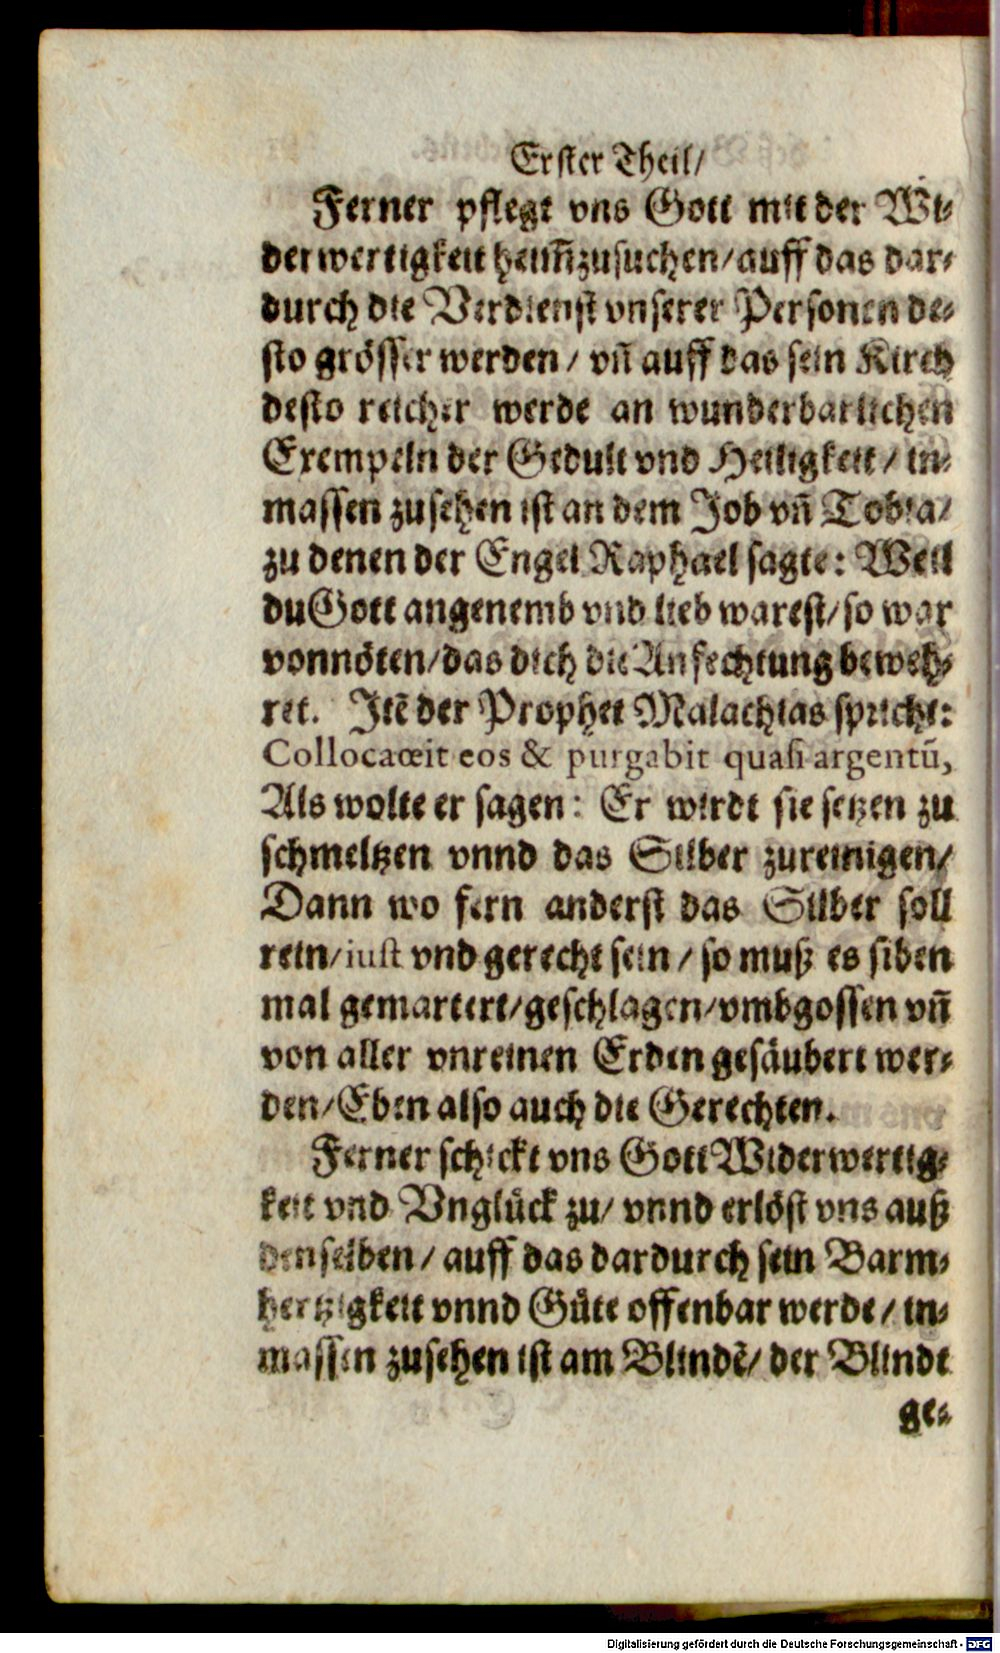 Erster Theil/
Ferner pflegt vns Gott mit der Wi-
derwertigkeit heimzusuchen/auff das dar-
durch die Verdienst vnserer Personen de-
sto grösser werden/ vn̄ auff das sein Kirch
desto reicher werde an wunderbarlichen
Exempeln der Gedult vnd Heiligkeit/ in-
massen zusehen ist an dem Job vn̄ Tobia/
zu denen der Engel Raphael sagte: Weil
du Gott angenemb vnd lieb warest/so war
vonnöten/das dich die Anfechtung beweh-
ret. Itē der Prophet Malachias spricht:
Collocaœit eos & purgabit quasi argentū,
Als wolte er sagen: Er wirdt sie setzen zu
schmeltzen vnnd das Silber zureinigen/
Dann wo fern anderst das Silber soll
rein/iust vnd gerecht sein/ so muß es siben
mal gemartert/geschlagen/vmbgossen vn̄
von aller vnreinen Erden gesäubert wer-
den/Eben also auch die Gerechten.
Ferner schickt vns Gott Widerwertig-
keit vnd Vnglück zu/ vnnd erlöst vns auß
denselben/ auff das dardurch sein Barm-
hertzigkeit vnnd Güte offenbar werde/ in-
massen zusehen ist am Blindē/ der Blinde
ge-
Digitalisierung gefördert durch die Deutsche Forschungsgemeinschaft - DFG